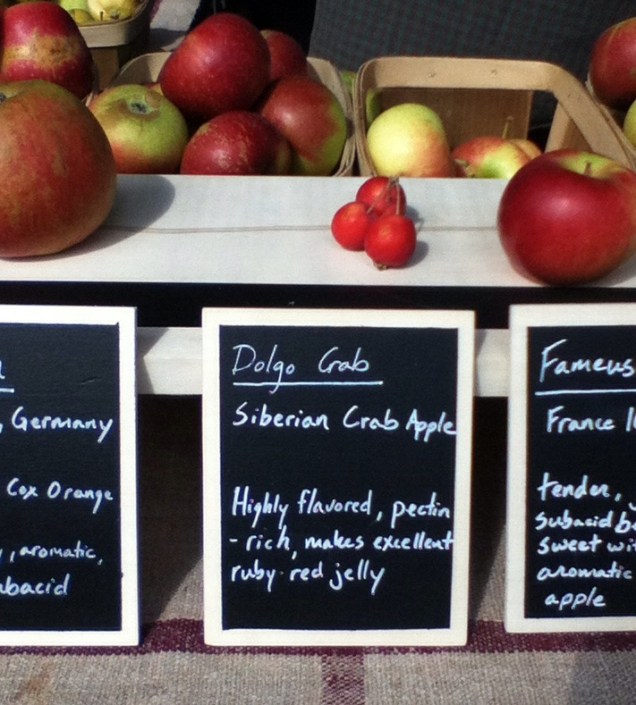 , Germany
Cox Orange
, aromatic,
Dolgo Crab
Siberian Crab Apple
Highly flavored, pectin
- rich, makes excellent
ruby-red jelly
Fameus
France
tender,
subacid
sweet
aromatic
apple